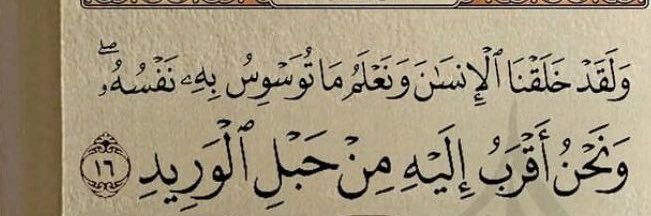 وَلَقَدۡ خَلَقۡنَا ٱلۡإِنسَٰنَ وَنَعۡلَمُ مَا تُوَسۡوِسُ بِهِۦ نَفۡسُهُۥۖ
وَنَحۡنُ أَقۡرَبُ إِلَيۡهِ مِنۡ حَبۡلِ ٱلۡوَرِيدِ ١٦